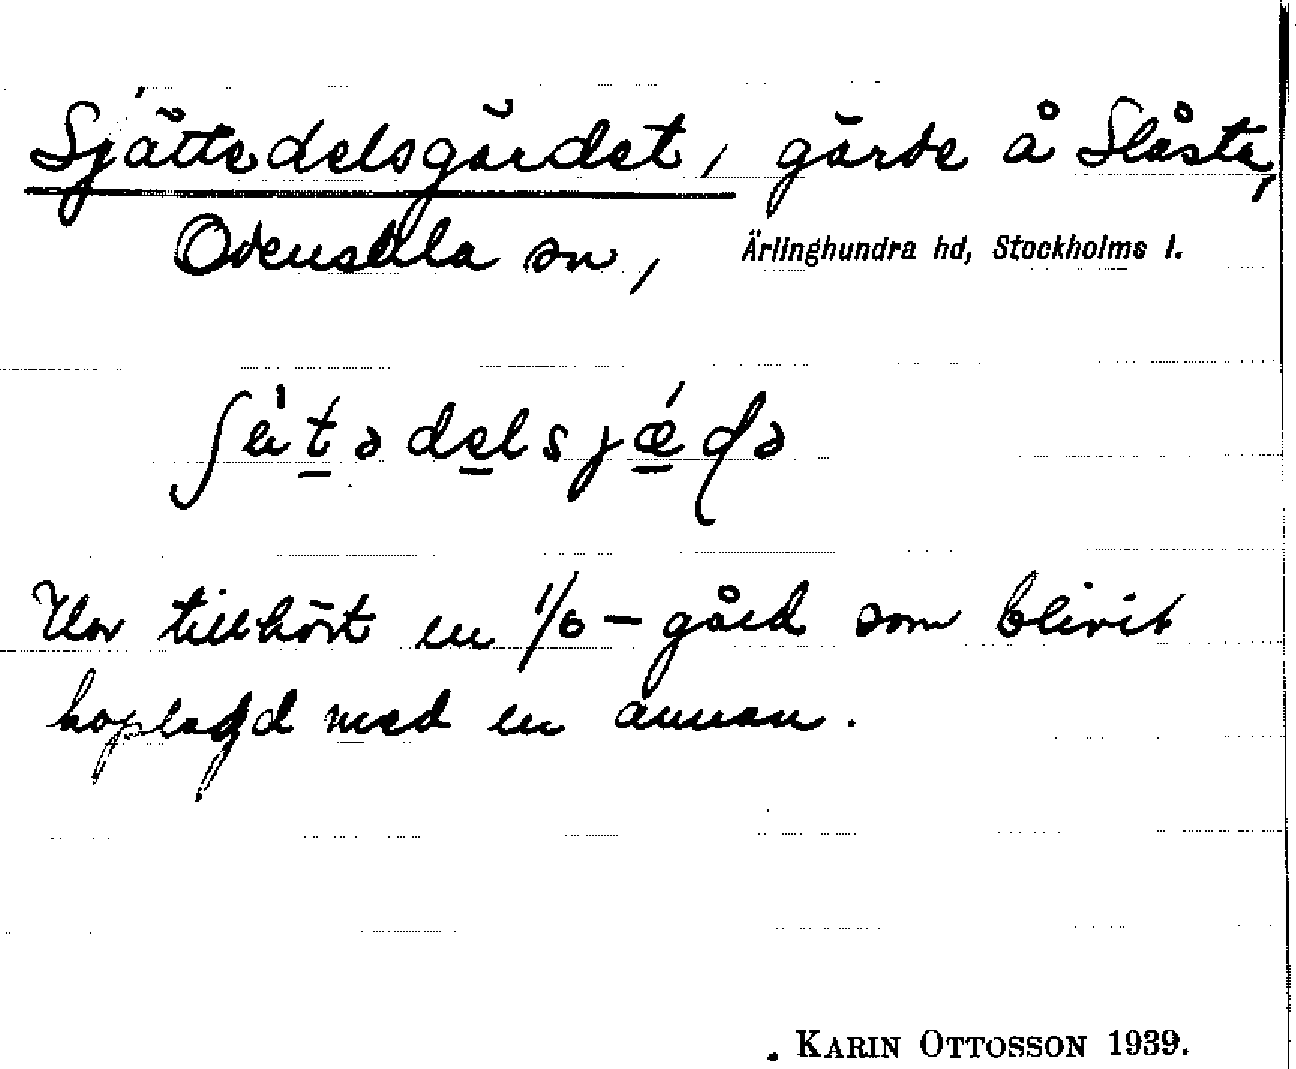 Sjättedelsgärdet, gärde å Slåsta,
Odensala sn, Ärlinghundra hd, Stockholms l.
Har tillhört en 1/6 – gård som blivit
hoplagd med en annan.
KARIN OTTOSSON 1939.